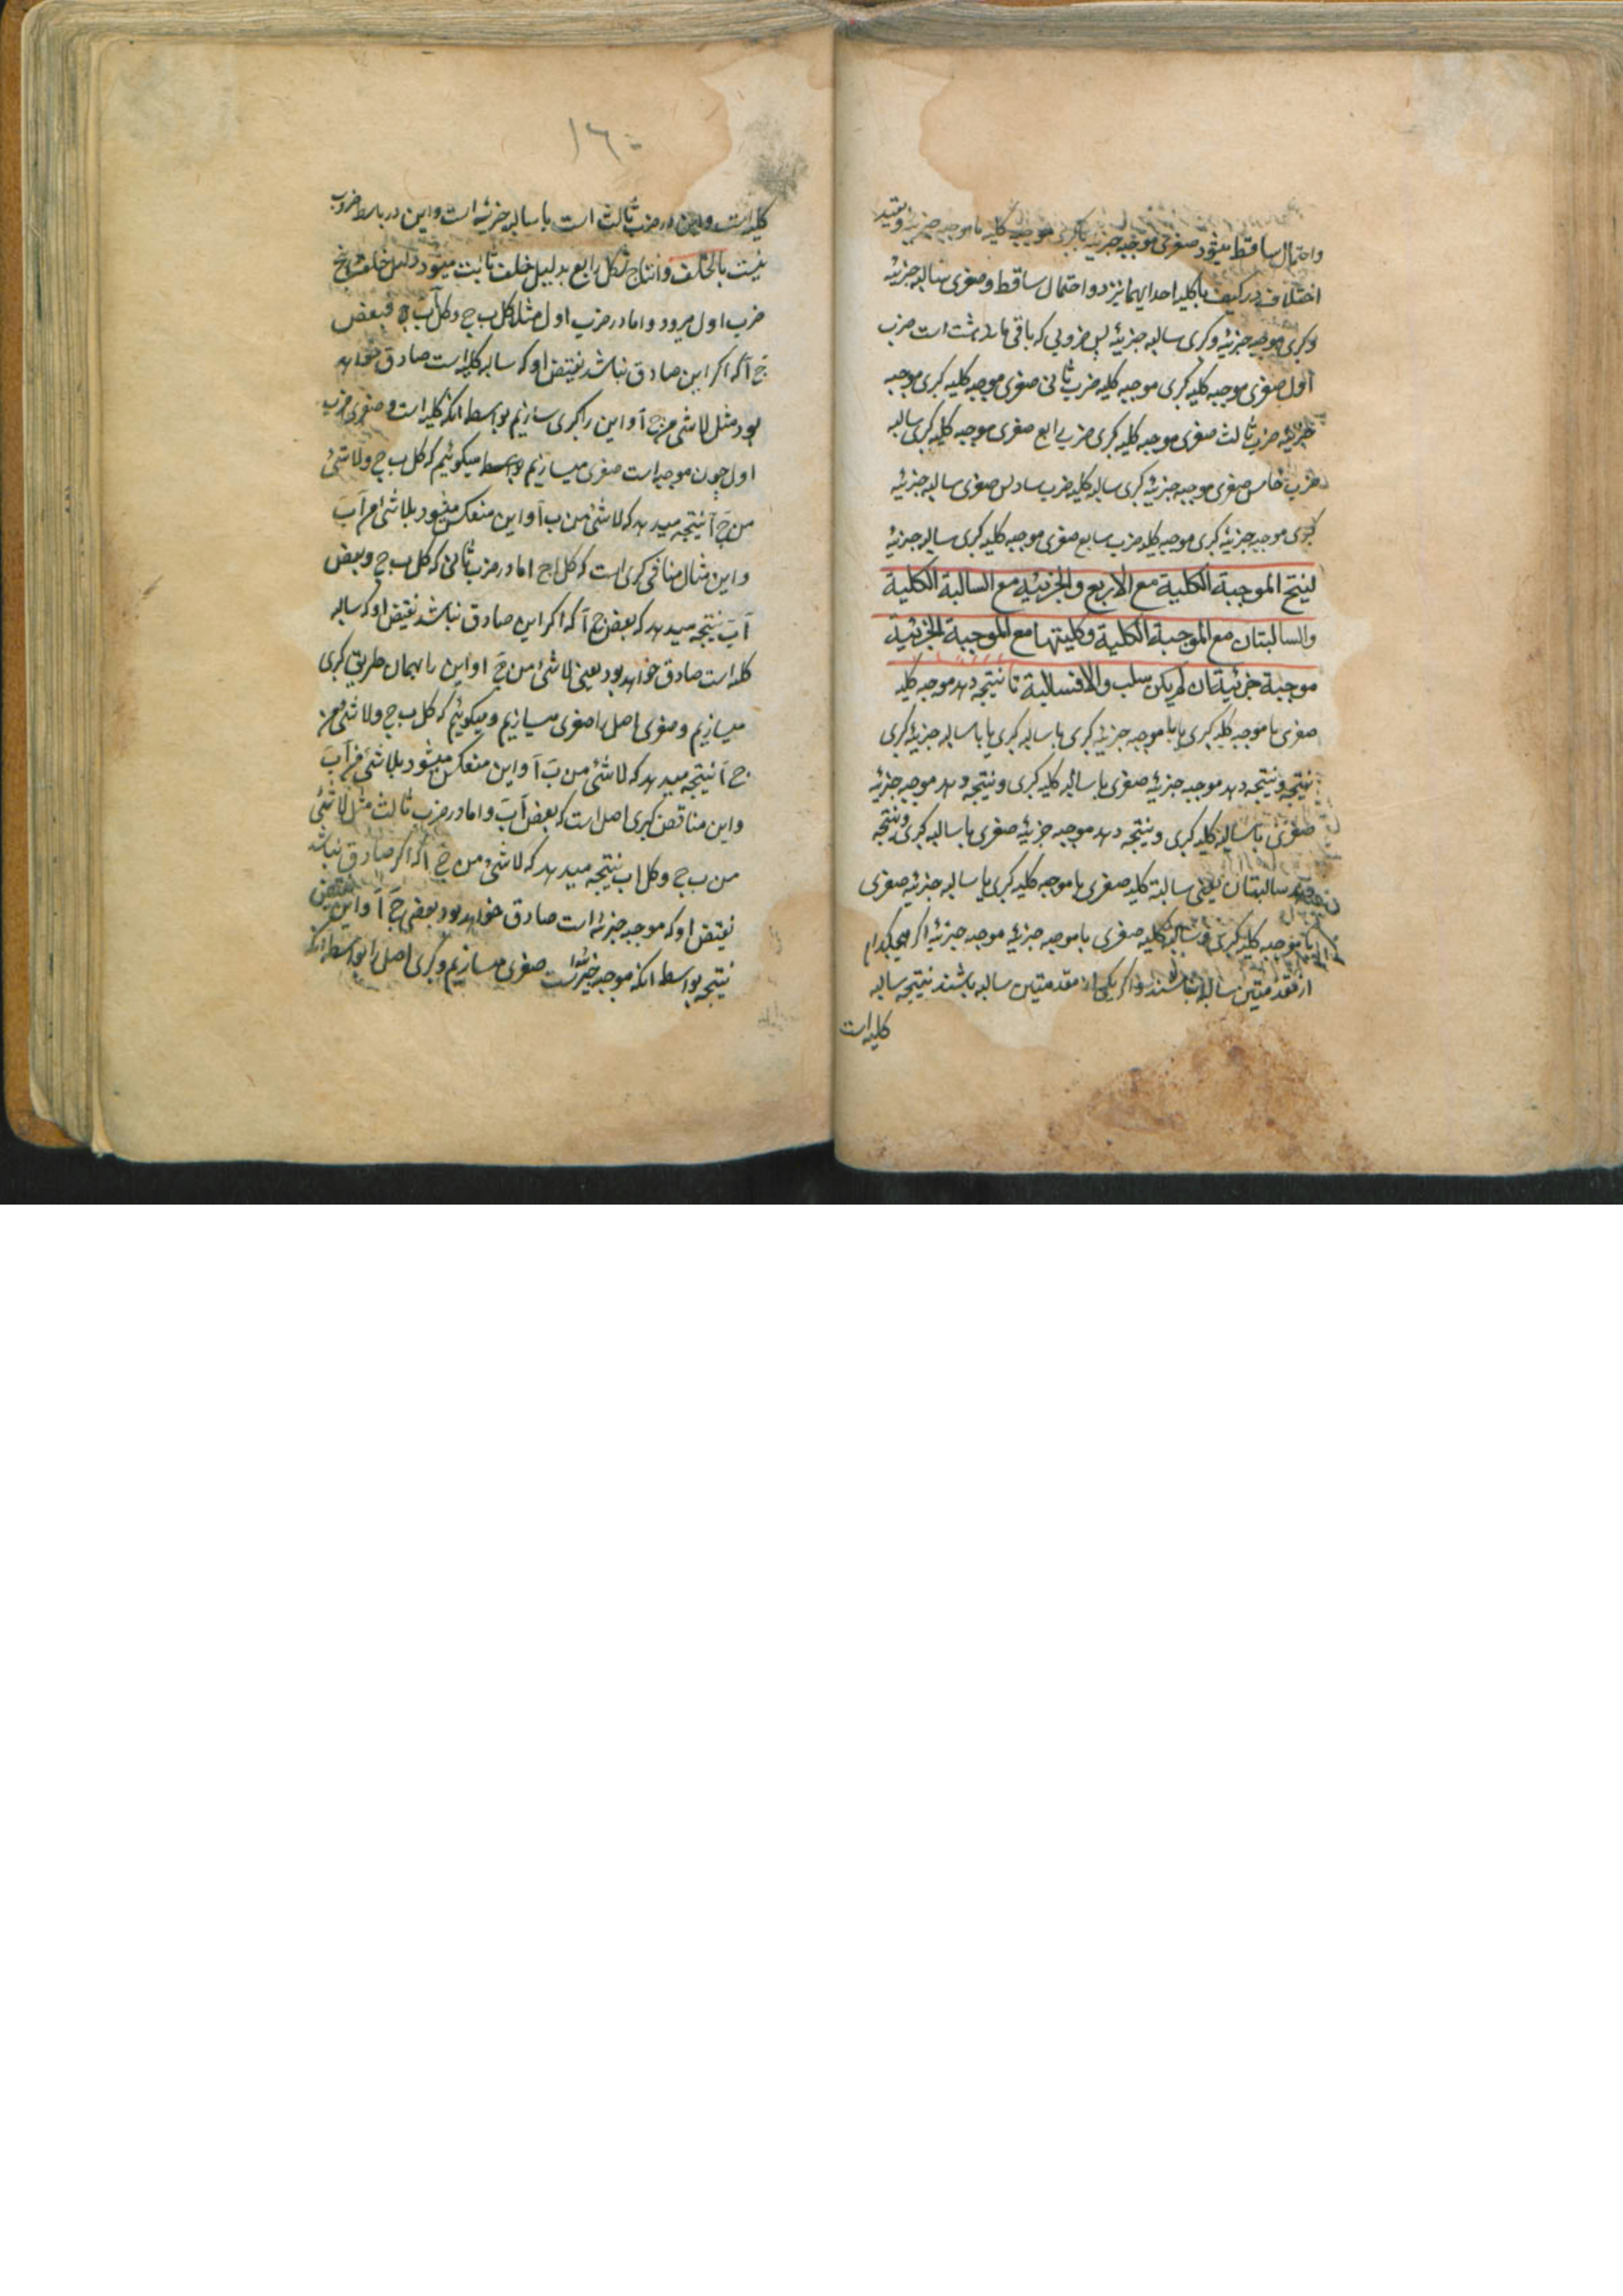 واحتمال ساقط میشود صغری موجبه جزئیه با کبری موجبه کلیه یا موجبه جزئیه وبقید
اختلاف در کیف با کلیه احدایهما نیز دو احتمال ساقط وصغری سالبه جزئیه
وکبری موجبه جزئیه وکبری سالبه جزئیه پس ضروبی که باقی ماند هشت است ضرب
اول صغری موجبه کلیه کبری موجبه کلیه ضرب ثانی صغری موجبه کلیه کبری موجبه
جزئیه ضرب ثالث صغری موجبه کلیه کبری ضرب رابع صغری موجبه کلیه کبری سالبه
ضرب خامس صغری موجبه جزئیه کبری سالبه کلیه ضرب سادس صغری سالبه جزئیه
کبری موجبه جزئیه کبری موجبه کلیه ضرب سابع صغری موجبه کلیه کبری سالبه جزئیه
لینتج الموجبة الکلیة مع الاربع والجزئیة مع السالبة الکلیة
والسالبتان مع الموجبة الکلیة وکلیتهما مع الموجبة الجزئیة
موجبة جزئیة ان لم یکن سلب والا فسالبة تا نتیجه دهد موجبه کلیه
صغری با موجبه کلیه کبری یا با موجبه جزئیه کبری یا سالبه کبری یا با سالبه جزئیه کبری
نتیجه ونتیجه دهد موجبه جزئیه صغری با سالبه کلیه کبری ونتیجه دهد موجبه جزئیه
صغری با سالبه کلیه کبری ونتیجه دهد موجبه جزئیه صغری با سالبه کبری ونتیجه
دهد سالبتان یعنی سالبة کلیه صغری با موجبه کلیه کبری یا سالبه جزئیه صغری
با موجبه کلیه کبری وسالبه کلیه صغری با موجبه جزئیه موجبه جزئیه اکر هیچکدام
از مقدمتین سالبه نباشند واکر یکی از مقدمتین سالبه باشند نتیجه سالبه
کلیه است
۱۶۰
کلیه است واین در ضرب ثالث است یا سالبه جزئیه است واین در باقی ضروب
نیست بالخلف وانتاج شکل رابع بدلیل خلف ثابت میشود دلیل خلف در پنج
ضرب اول میرود واما در ضرب اول مثل کل ب ج وکل آب فبعض
ج آ که اکر این صادق نباشد نقیض او که سالبه کلیه است صادق خواهد
بود مثل لا شئ من ج آ واین را کبری سازیم بواسطه انکه کلیه است وصغری ضرب
اول چون موجبه است صغری میسازیم میکوئیم که کل ب ج ولا شئ
من ج آ نتیجه میدهد که لا شئ من ب آ واین منعکس میشود بلا شئ من آ ب
واین مثال منافی کبری است که کل اج اما در ضرب ثانی که کل ب ج وبعض
آب نتیجه میدهد که بعض ج آ که اکر این صادق نباشد نقیض او که سالبه
کلیه است صادق خواهد بود یعنی لا شئ من ج ا واین را بهمان طریق کبری
میسازیم وصغری اصل را صغری میسازیم ومیکوئیم که کل ب ج ولا شئ من
ج آ نتیجه میدهد که لا شئ من ب آ واین منعکس میشود بلا شئ من آ ب
واین مناقض کبری اصل است که بعض آب واما در ضرب ثالث مثل لا شئ
من ب ج وکل اب نتیجه میدهد که لا شئ من ج آ که اکر صادق نباشد
نقیض او که موجبه جزئیه است صادق خواهد بود بعض ج آ واین نقیض
نتیجه بواسطه انکه موجبه جزئیه است صغری میسازیم وکبری اصل را بواسطه انکه